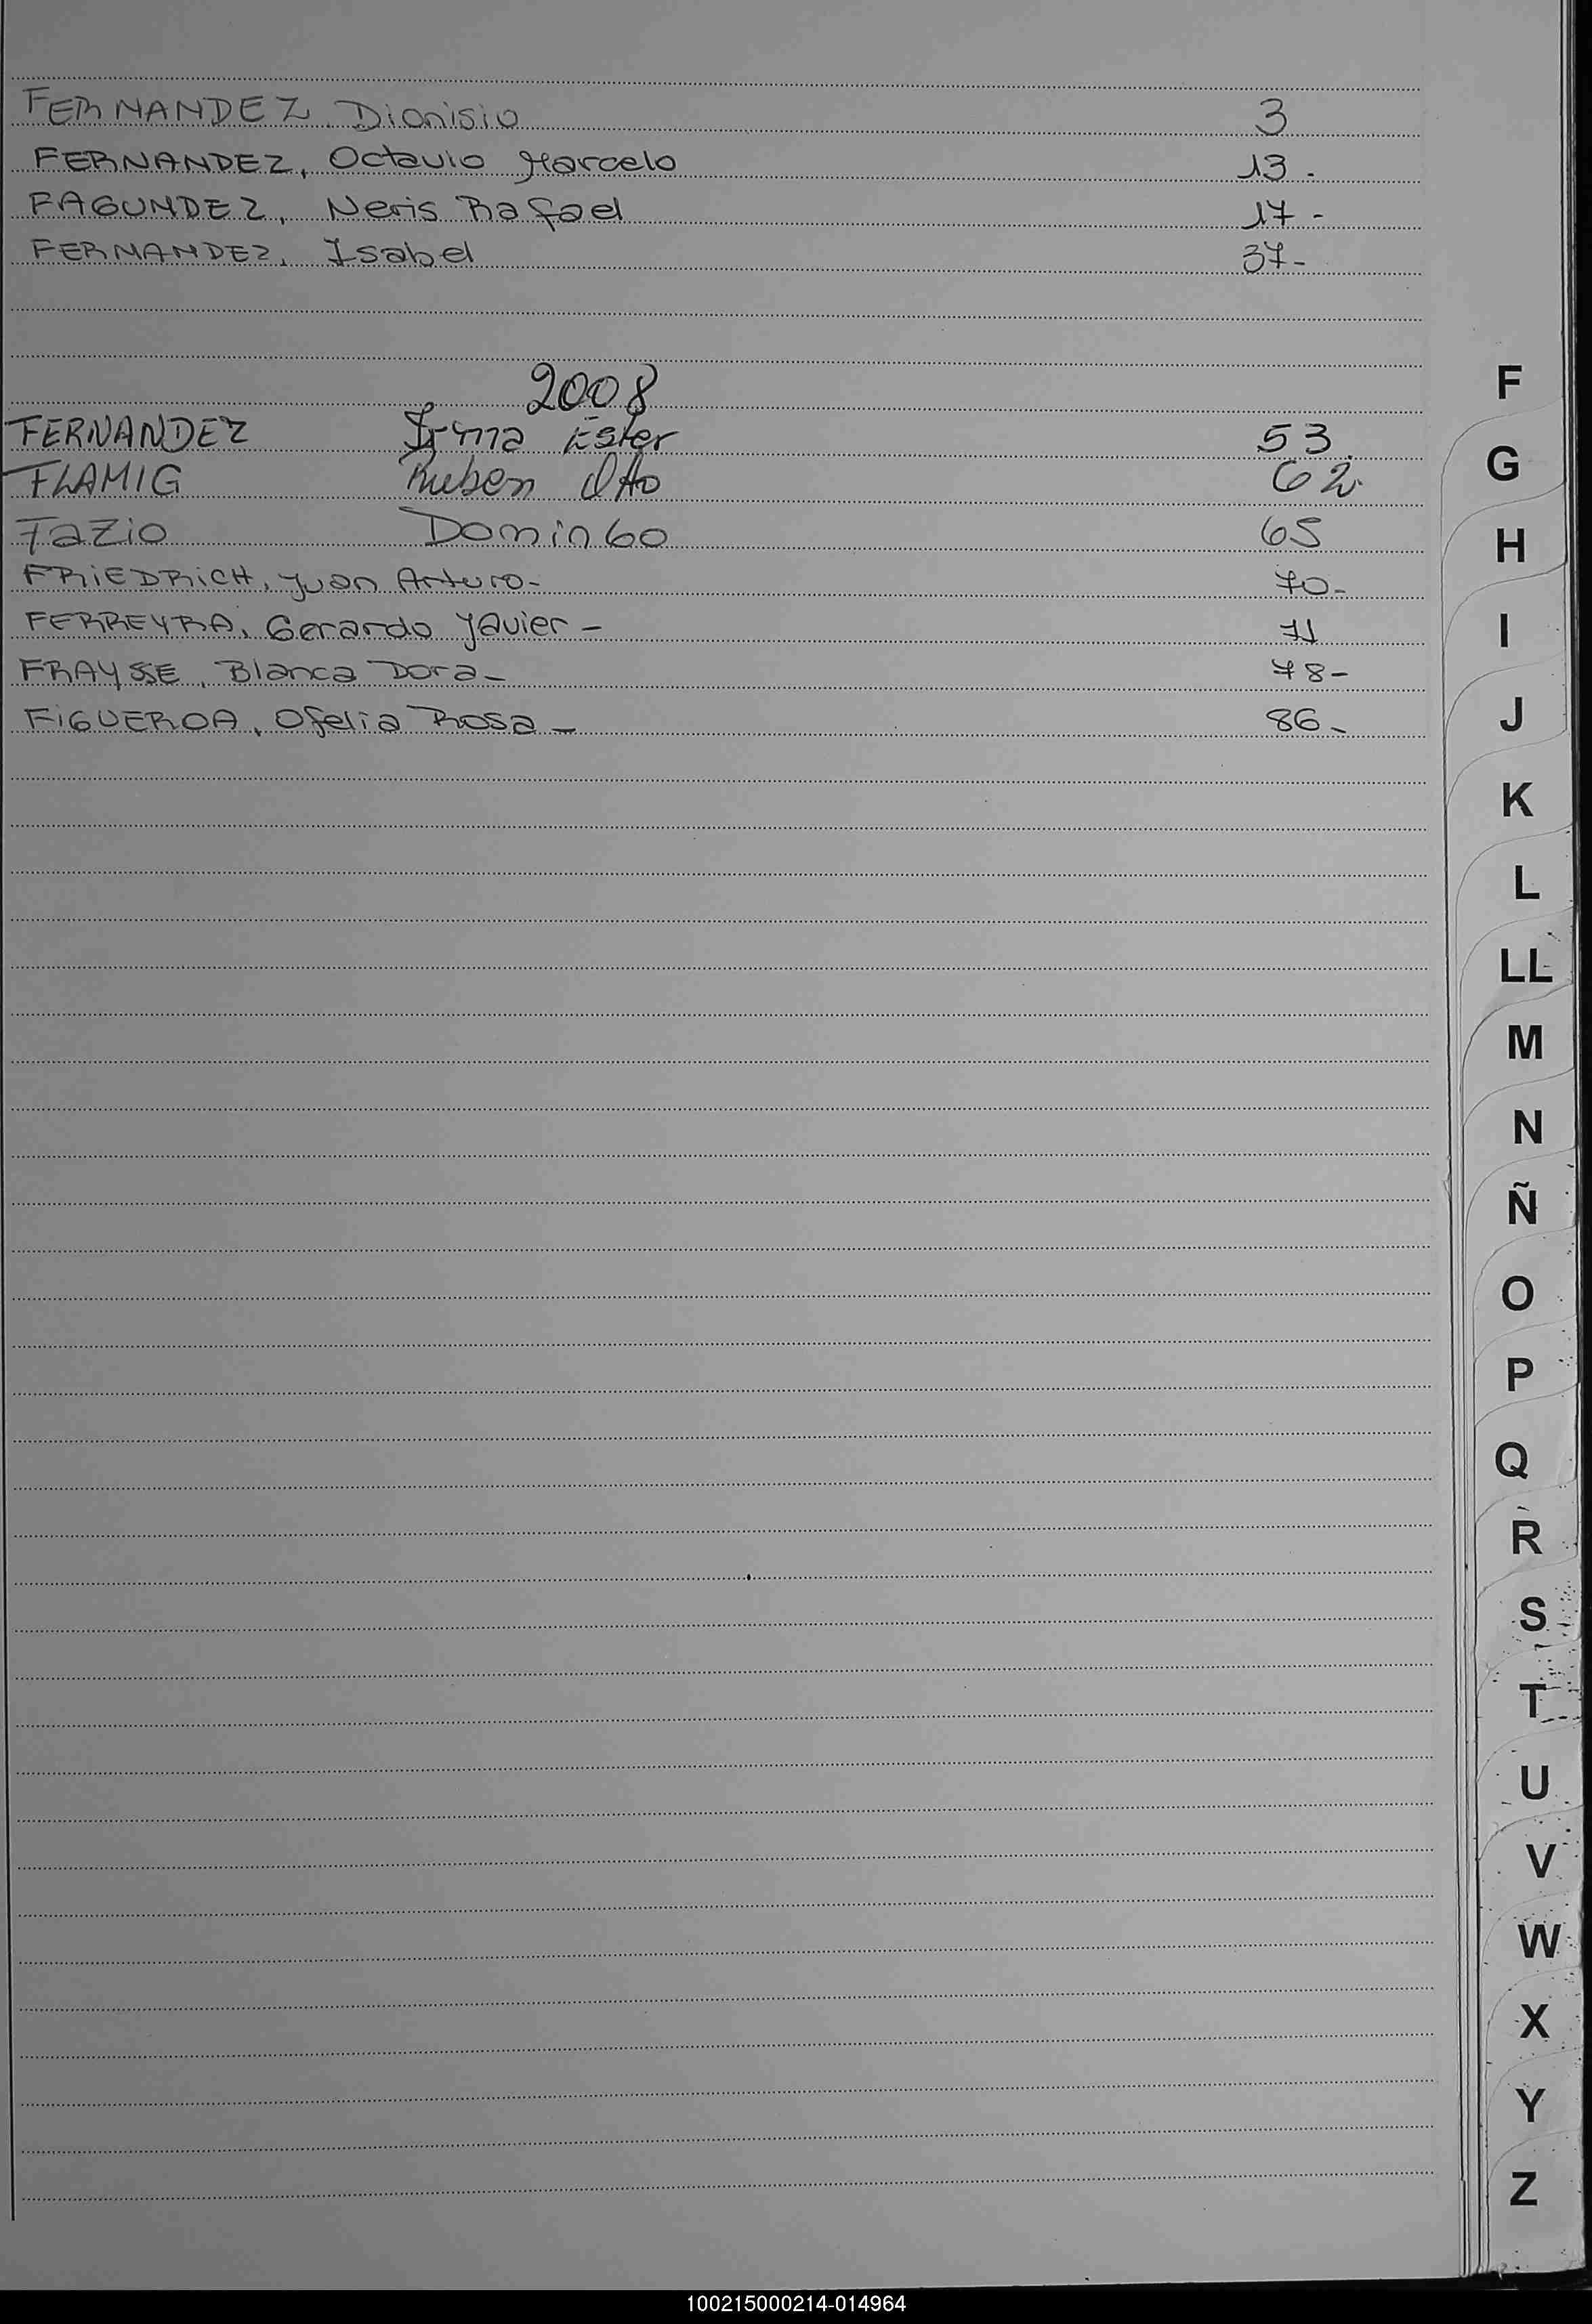 FERNANDEZ, Dionisio 3
FERNANDEZ, Octavio Marcelo 13.
FAGUNDEZ, Neris Rafael 17-
FERNANDEZ, Isabel 37-
2008
FERNANDEZ Irma Ester 53.
FLAMIG Ruben Otto 62.
Fazio Domingo 65
FRIEDRICH, Juan Arturo- 70-
FERREYRA, Gerardo Javier - 71
FRAYSSE, Blanca Dora- 78-
FIGUEROA, Ofelia Rosa- 86-
F
G
H
I
J
K
L
LL
M
N
Ñ
O
P
Q
R
S
T
U
V
W
X
Y
Z
100215000214-014964